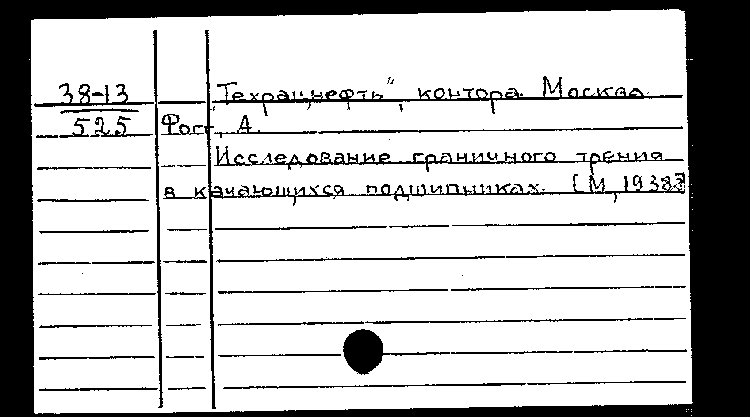 38-13 „Техрацнефть“, контора. Москва.
525 Фогг, А.
Исследование граничного трения
в качающихся подшипниках. [М, 1938]